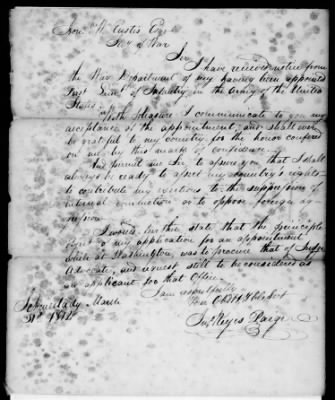 Hon. W. Eustis Esqr
Secy of War
Sir
I have received notice from
the War Department of my having been appointed
Lieut. of Infantry in the Army of the United
States.
With pleasure I communicate to you my
acceptance of the appointment, and shall
be grateful to my country for the honor conferred
on me by this mark of confidence.
And permit me Sir, to assure you that I shall
always be ready to assert my country's rights
to contribute my exertions to the suppression of
internal convulsion or to oppose foreign ag-
gression.
I would further state that the principle
object of my application for an appointment
while at Washington, was to procure that of Judge
Advocate, and request still to be considered as
an applicant for that Office.
I am respectfully
Your Obt Hble Servt
Jno Keyes Paige
Schenectady March
31st 1812